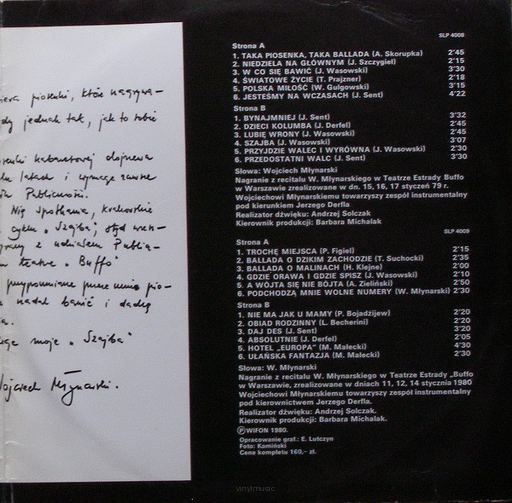 piosenki, które nagrywa-
jednak tak, jak to robić
kabaretowej
latach i wymaga zawsze
Publiczności.
Nig spotkanie,
cyklu „Szajba",
z udziałem Publi-
teatrze „Buffo"
przypomniane przeze mnie pio-
nadal bawić i dadzą
moje „Szajba"
Wojciech Młynarski.
SLP 4008
Strona A
1. TAKA PIOSENKA, TAKA BALLADA (A. Skorupka) 2'45
2. NIEDZIELA NA GŁÓWNYM (J. Szczygieł) 2'15
3. W CO SIĘ BAWIĆ (J. Wasowski) 3'30
4. ŚWIATOWE ŻYCIE (T. Prajzner) 2'18
5. POLSKA MIŁOŚĆ (W. Gulgowski) 3'15
6. JESTEŚMY NA WCZASACH (J. Sent) 4'22
Strona B
1. BYNAJMNIEJ (J. Sent) 3'32
2. DZIECI KOLUMBA (J. Derfel) 2'45
3. LUBIĘ WRONY (J. Wasowski) 2'45
4. SZAJBA (J. Wasowski) 3'07
5. PRZYJDZIE WALEC I WYRÓWNA (J. Wasowski) 2'30
6. PRZEDOSTATNI WALC (J. Sent) 3'30
Słowa: Wojciech Młynarski
Nagranie z recitalu W. Młynarskiego w Teatrze Estrady Buffo
w Warszawie zrealizowane w dn. 15, 16, 17 styczeń 79 r.
Wojciechowi Młynarskiemu towarzyszy zespół instrumentalny
pod kierunkiem Jerzego Derfla
Realizator dźwięku: Andrzej Solczak
Kierownik produkcji: Barbara Michalak
SLP 4009
Strona A
1. TROCHĘ MIEJSCA (P. Figiel) 2'15
2. BALLADA O DZIKIM ZACHODZIE (T. Suchocki) 2'35
3. BALLADA O MALINACH (H. Klejne) 2'00
4. GDZIE ORAWA I GDZIE SPISZ (J. Wasowski) 2'10
5. A WÓJTA SIĘ NIE BÓJTA (A. Zieliński) 2'50
6. PODCHODZĄ MNIE WOLNE NUMERY (W. Młynarski) 2'30
Strona B
1. NIE MA JAK U MAMY (P. Bojadżijew) 2'20
2. OBIAD RODZINNY (L. Becherini) 2'20
3. DAJ DES (J. Sent) 3'20
4. ABSOLUTNIE (J. Derfel) 2'05
5. HOTEL „EUROPA" (M. Małecki) 4'30
6. UŁAŃSKA FANTAZJA (M. Małecki) 2'30
Słowa: W. Młynarski
Nagranie z recitalu W. Młynarskiego w Teatrze Estrady „Buffo
w Warszawie, zrealizowane w dniach 11, 12, 14 stycznia 1980
Wojciechowi Młynarskiemu towarzyszy zespół instrumentalny
pod kierownictwem Jerzego Derfla.
Realizator dźwięku: Andrzej Solczak.
Kierownik produkcji: Barbara Michalak.
Ⓟ WIFON 1980.
Opracowanie graf.: E. Lutczyn
Foto: Kamiński
Cena kompletu 160,- zł.
vinylmusic